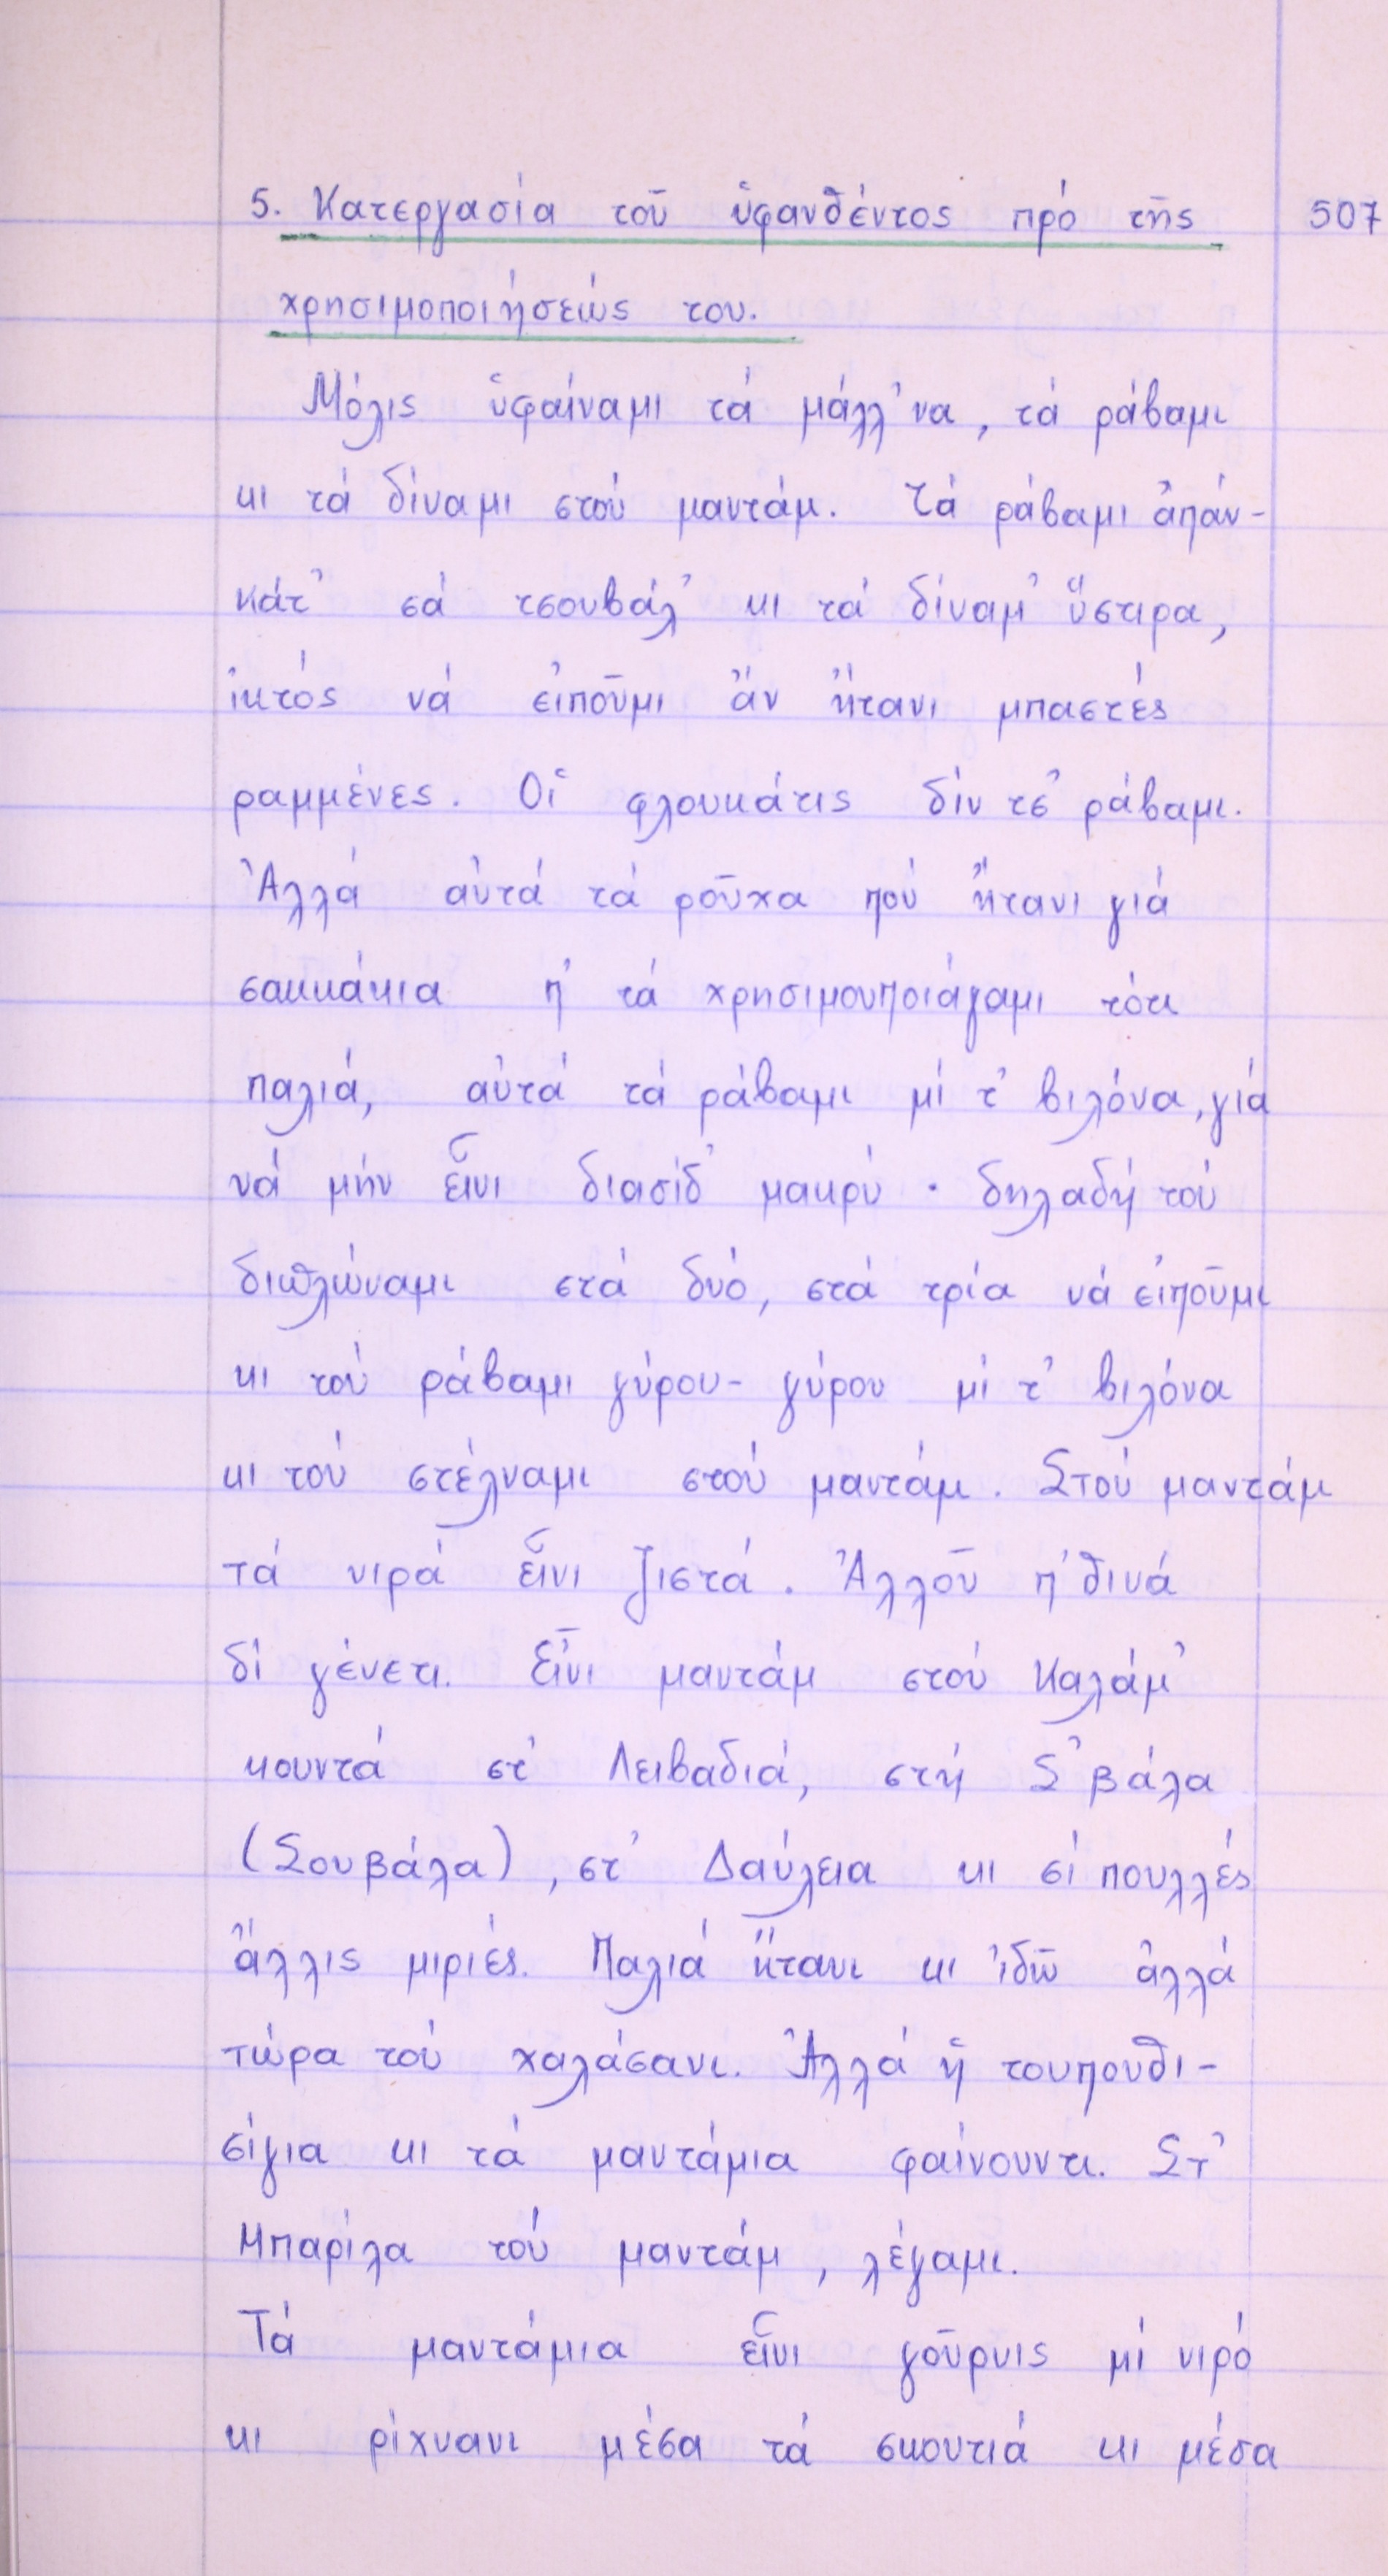 5. Κατεργασία τοῦ ὑφανθέντος πρό τῆς 507
χρησιμοποιήσεώς του.
Μόλις ὑφαίναμι τά μάλλ᾿να, τά ράβαμι
κι τά δίναμι στού μαντάμ. Τά ράβαμι ἀπάν-
κάτ᾿ σά τσουβάλ᾿ κι τά δίναμ᾿ ὕστιρα,
ἰκτός νά εἰποῦμι ἄν ἤτανι μπαστές
ραμμένες. Οἱ φλουκάτις δίν τσ᾿ ράβαμι.
Ἀλλά αὐτά τά ροῦχα πού ἤτανι γιά
σακκάκια ἤ τά χρησιμουποιάγαμι τότι
παλιά, αὐτά τά ράβαμι μί τ᾿ βιλόνα, γιά
νά μήν εἶνι διασίδ᾿ μακρύ · δηλαδή τού
διπλώναμι στά δυό, στά τρία νά εἰποῦμι
κι τού ράβαμι γύρου-γύρου μί τ᾿ βιλόνα
κι τού στέλναμι στού μαντάμ. Στού μαντάμ
τά νιρά εἶνι ζιστά. Ἀλλοῦ π᾿θινά
δί γένετι. Εἶνι μαντάμ στού Καλάμ᾿
κουντά στ᾿ Λειβαδιά, στή Σ᾿βάλα
(Σουβάλα), στ᾿ Δαύλεια κι σί πουλλές
ἄλλις μιριές. Παλιά ἤτανι κι ἰδῶ ἀλλά
τώρα τού χαλάσανι. Ἀλλά ἡ τουπουθι-
σίγια κι τά μαντάμια φαίνουντι. Στ᾿
Μπαρίλα τού μαντάμ, λέγαμι.
Τά μαντάμια εἶνι γοῦρνις μί νιρό
κι ρίχνανι μέσα τά σκουτιά κι μέσα